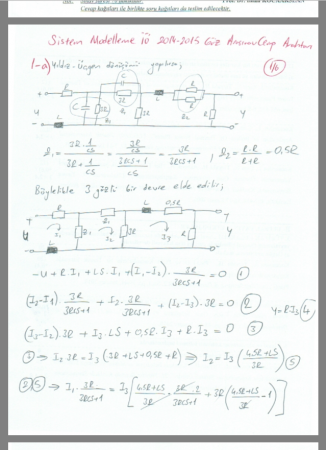 Cevap kağıtları ile birlikte soru kağıtları da teslim edilecektir.
Sistem Modelleme 2014-2015 Güz Cevap Anahtarı
1-a) Yıldız-üçgen dönüşümü yapılırsa;
R C 3R L R R
U C 3R 3R R Y
L
Z₁ = (3R · 1/CS) / (3R + 1/CS) = (3R/CS) / ((3RCS+1)/CS) = 3R / (3RCS+1) , Z₂ = R·R / (R+R) = 0,5R
Böylelikle 3 gözlü bir devre elde edilir;
R Z₁ L 0,5R
U I₁ Z₁ I₂ 3R I₃ R Y
L
-U + R I₁ + LS I₁ + (I₁-I₂) · 3R/(3RCS+1) = 0 ①
(I₂-I₁) 3R/(3RCS+1) + I₂ · 3R/(3RCS+1) + (I₂-I₃) · 3R = 0 ②
Y = R I₃ ④
(I₃-I₂) 3R + I₃ · LS + 0,5R I₃ + R · I₃ = 0 ③
③ ⇒ I₂ 3R = I₃ (3R + LS + 0,5R + R) ⇒ I₂ = I₃ ((4,5R+LS)/3R) ⑤
②⑤ ⇒ I₁ · 3R/(3RCS+1) = I₃ [ (4,5R+LS)/3R · 3R·2/(3RCS+1) + 3R ((4,5R+LS)/3R - 1) ]